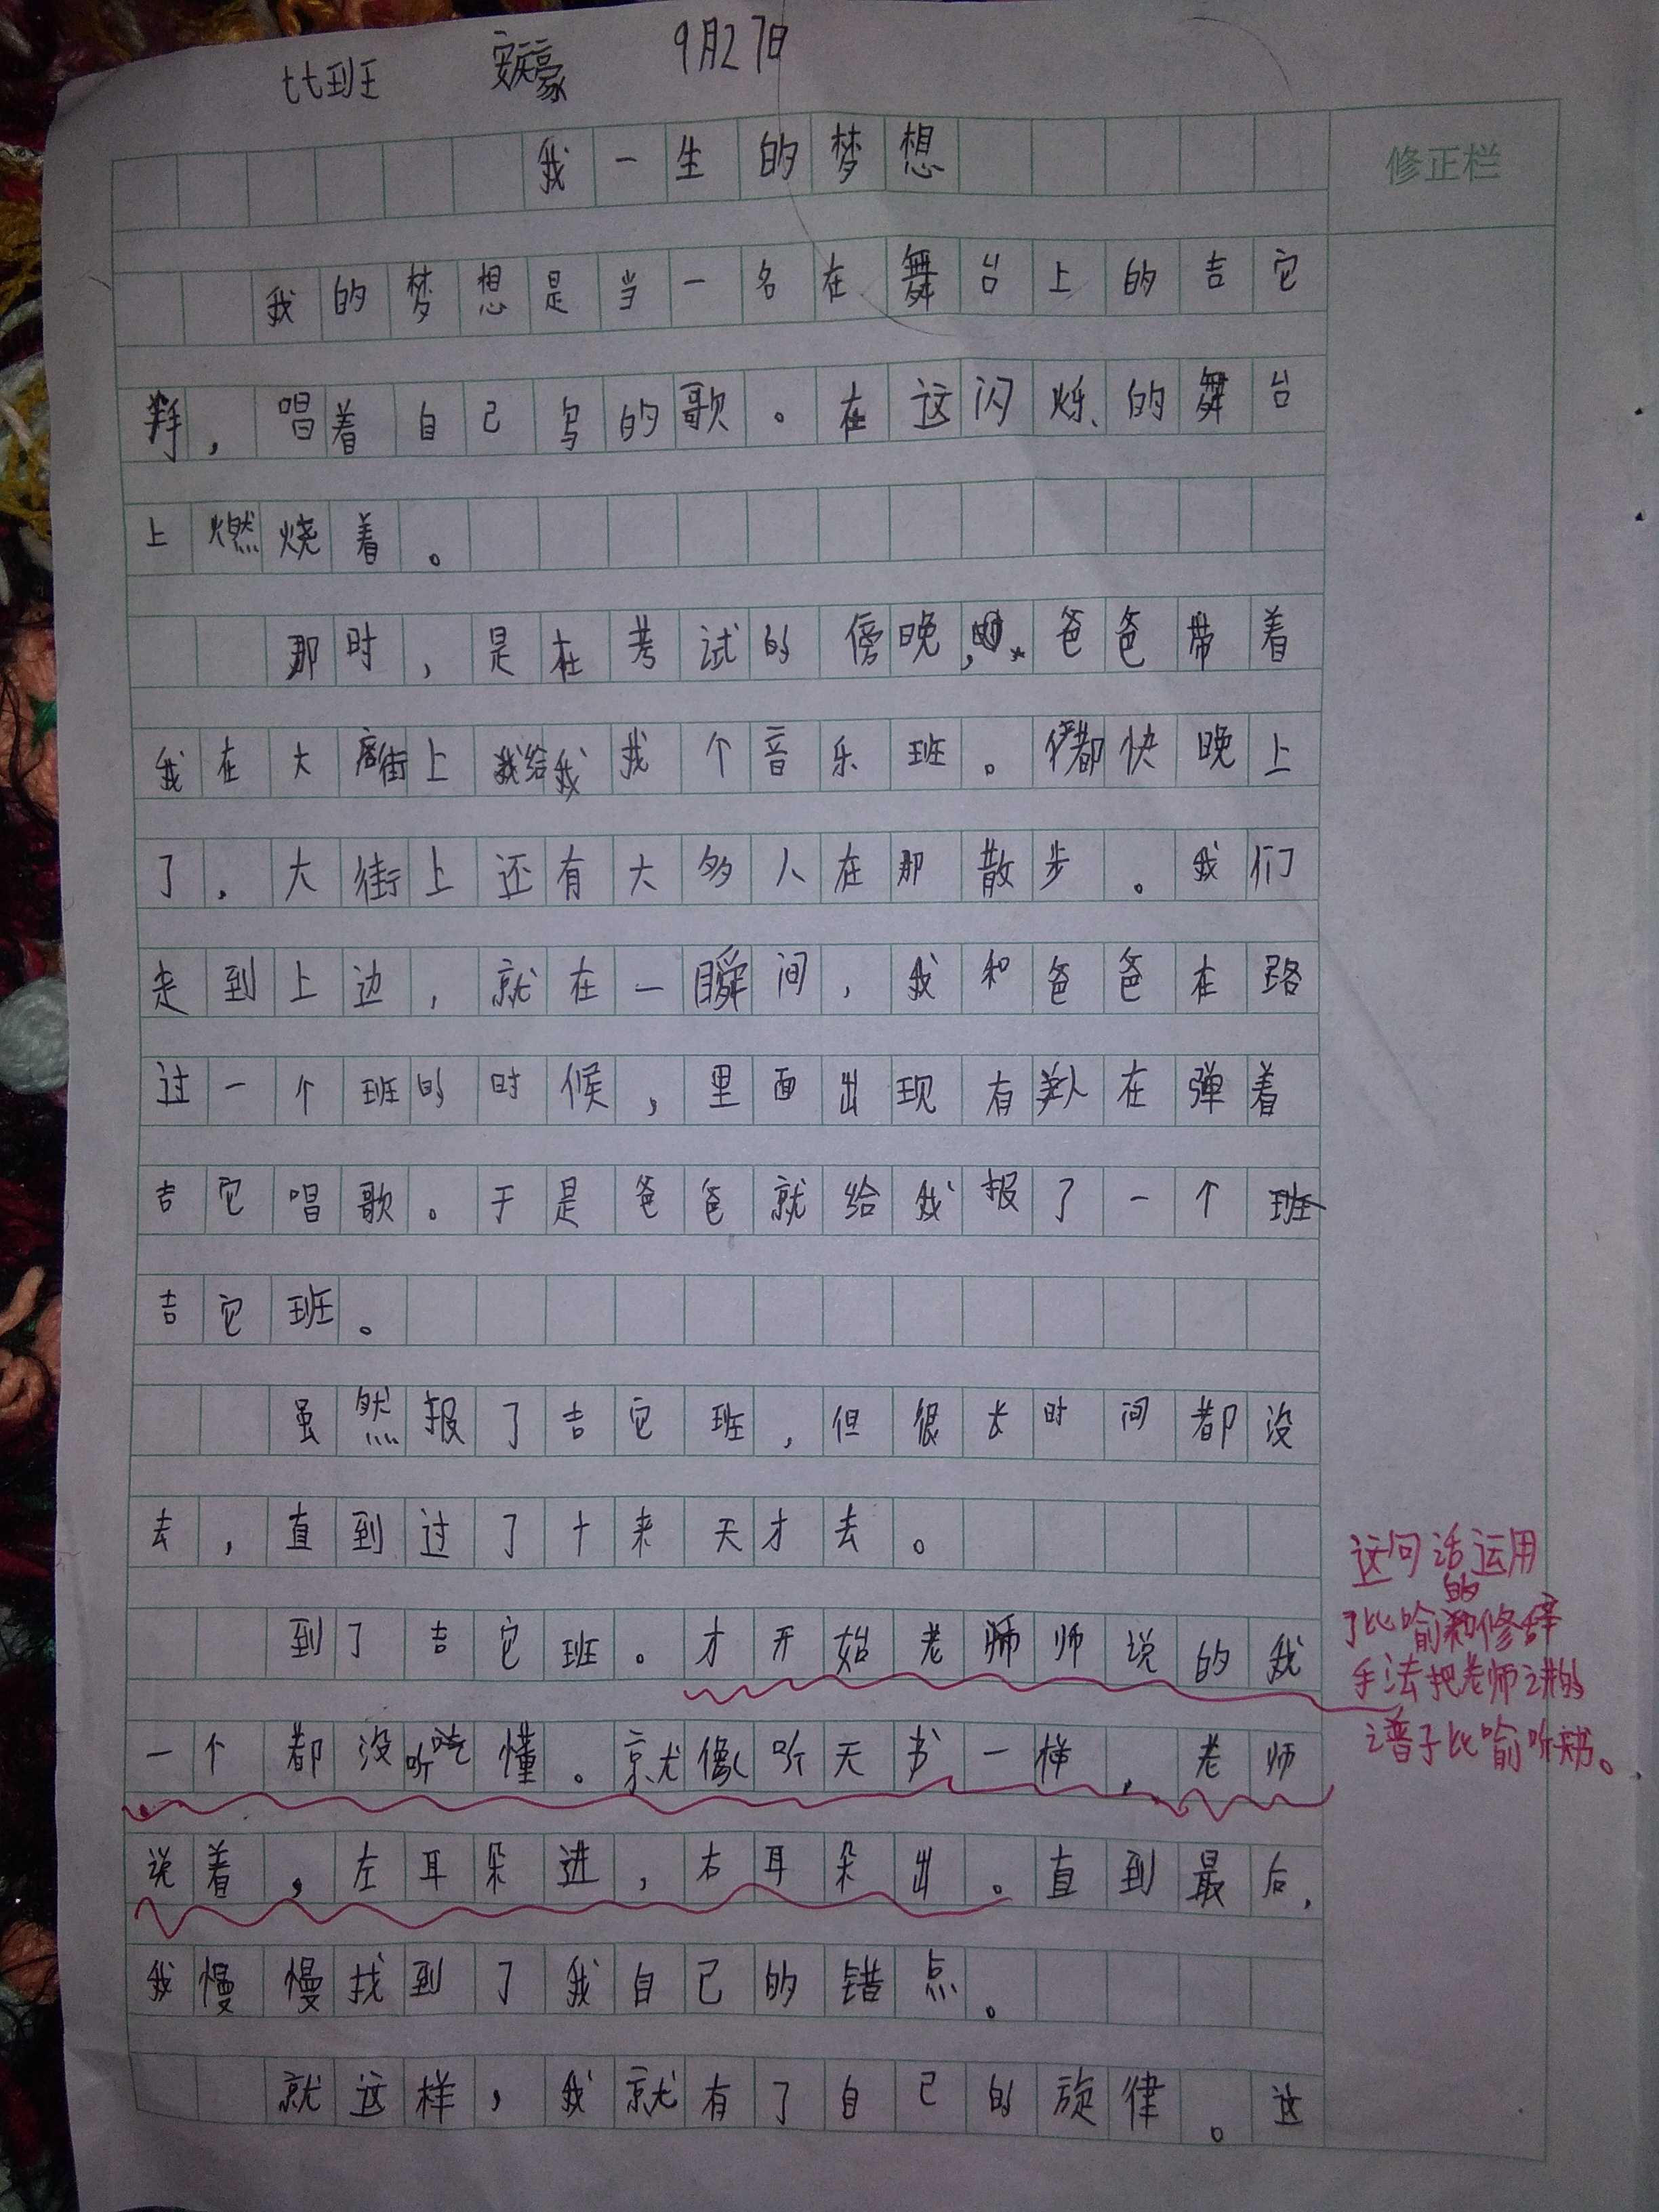 比班 安庆豪 9月27日
我一生的梦想
修正栏
我的梦想是当一名在舞台上的吉它
手，唱着自己写的歌。在这闪烁的舞台
上燃烧着。
那时，是在考试的傍晚，爸爸带着
我在大街上给我找个音乐班。都快晚上
了，大街上还有大多人在那散步。我们
走到上边，就在一瞬间，我和爸爸在路
过一个班的时候，里面出现有人在弹着
吉它唱歌。于是爸爸就给我报了一个
吉它班。
虽然报了吉它班，但很长时间都没
去，直到过了十来天才去。
到了吉它班。才开始老师师说的我
一个都没听懂。就像听天书一样，老师
说着，左耳朵进，右耳朵出。直到最后，
我慢慢找到了我自己的错点。
就这样，我就有了自己的旋律。这
这句话运用
了比喻的修辞
手法把老师讲的
谱子比喻听天书。